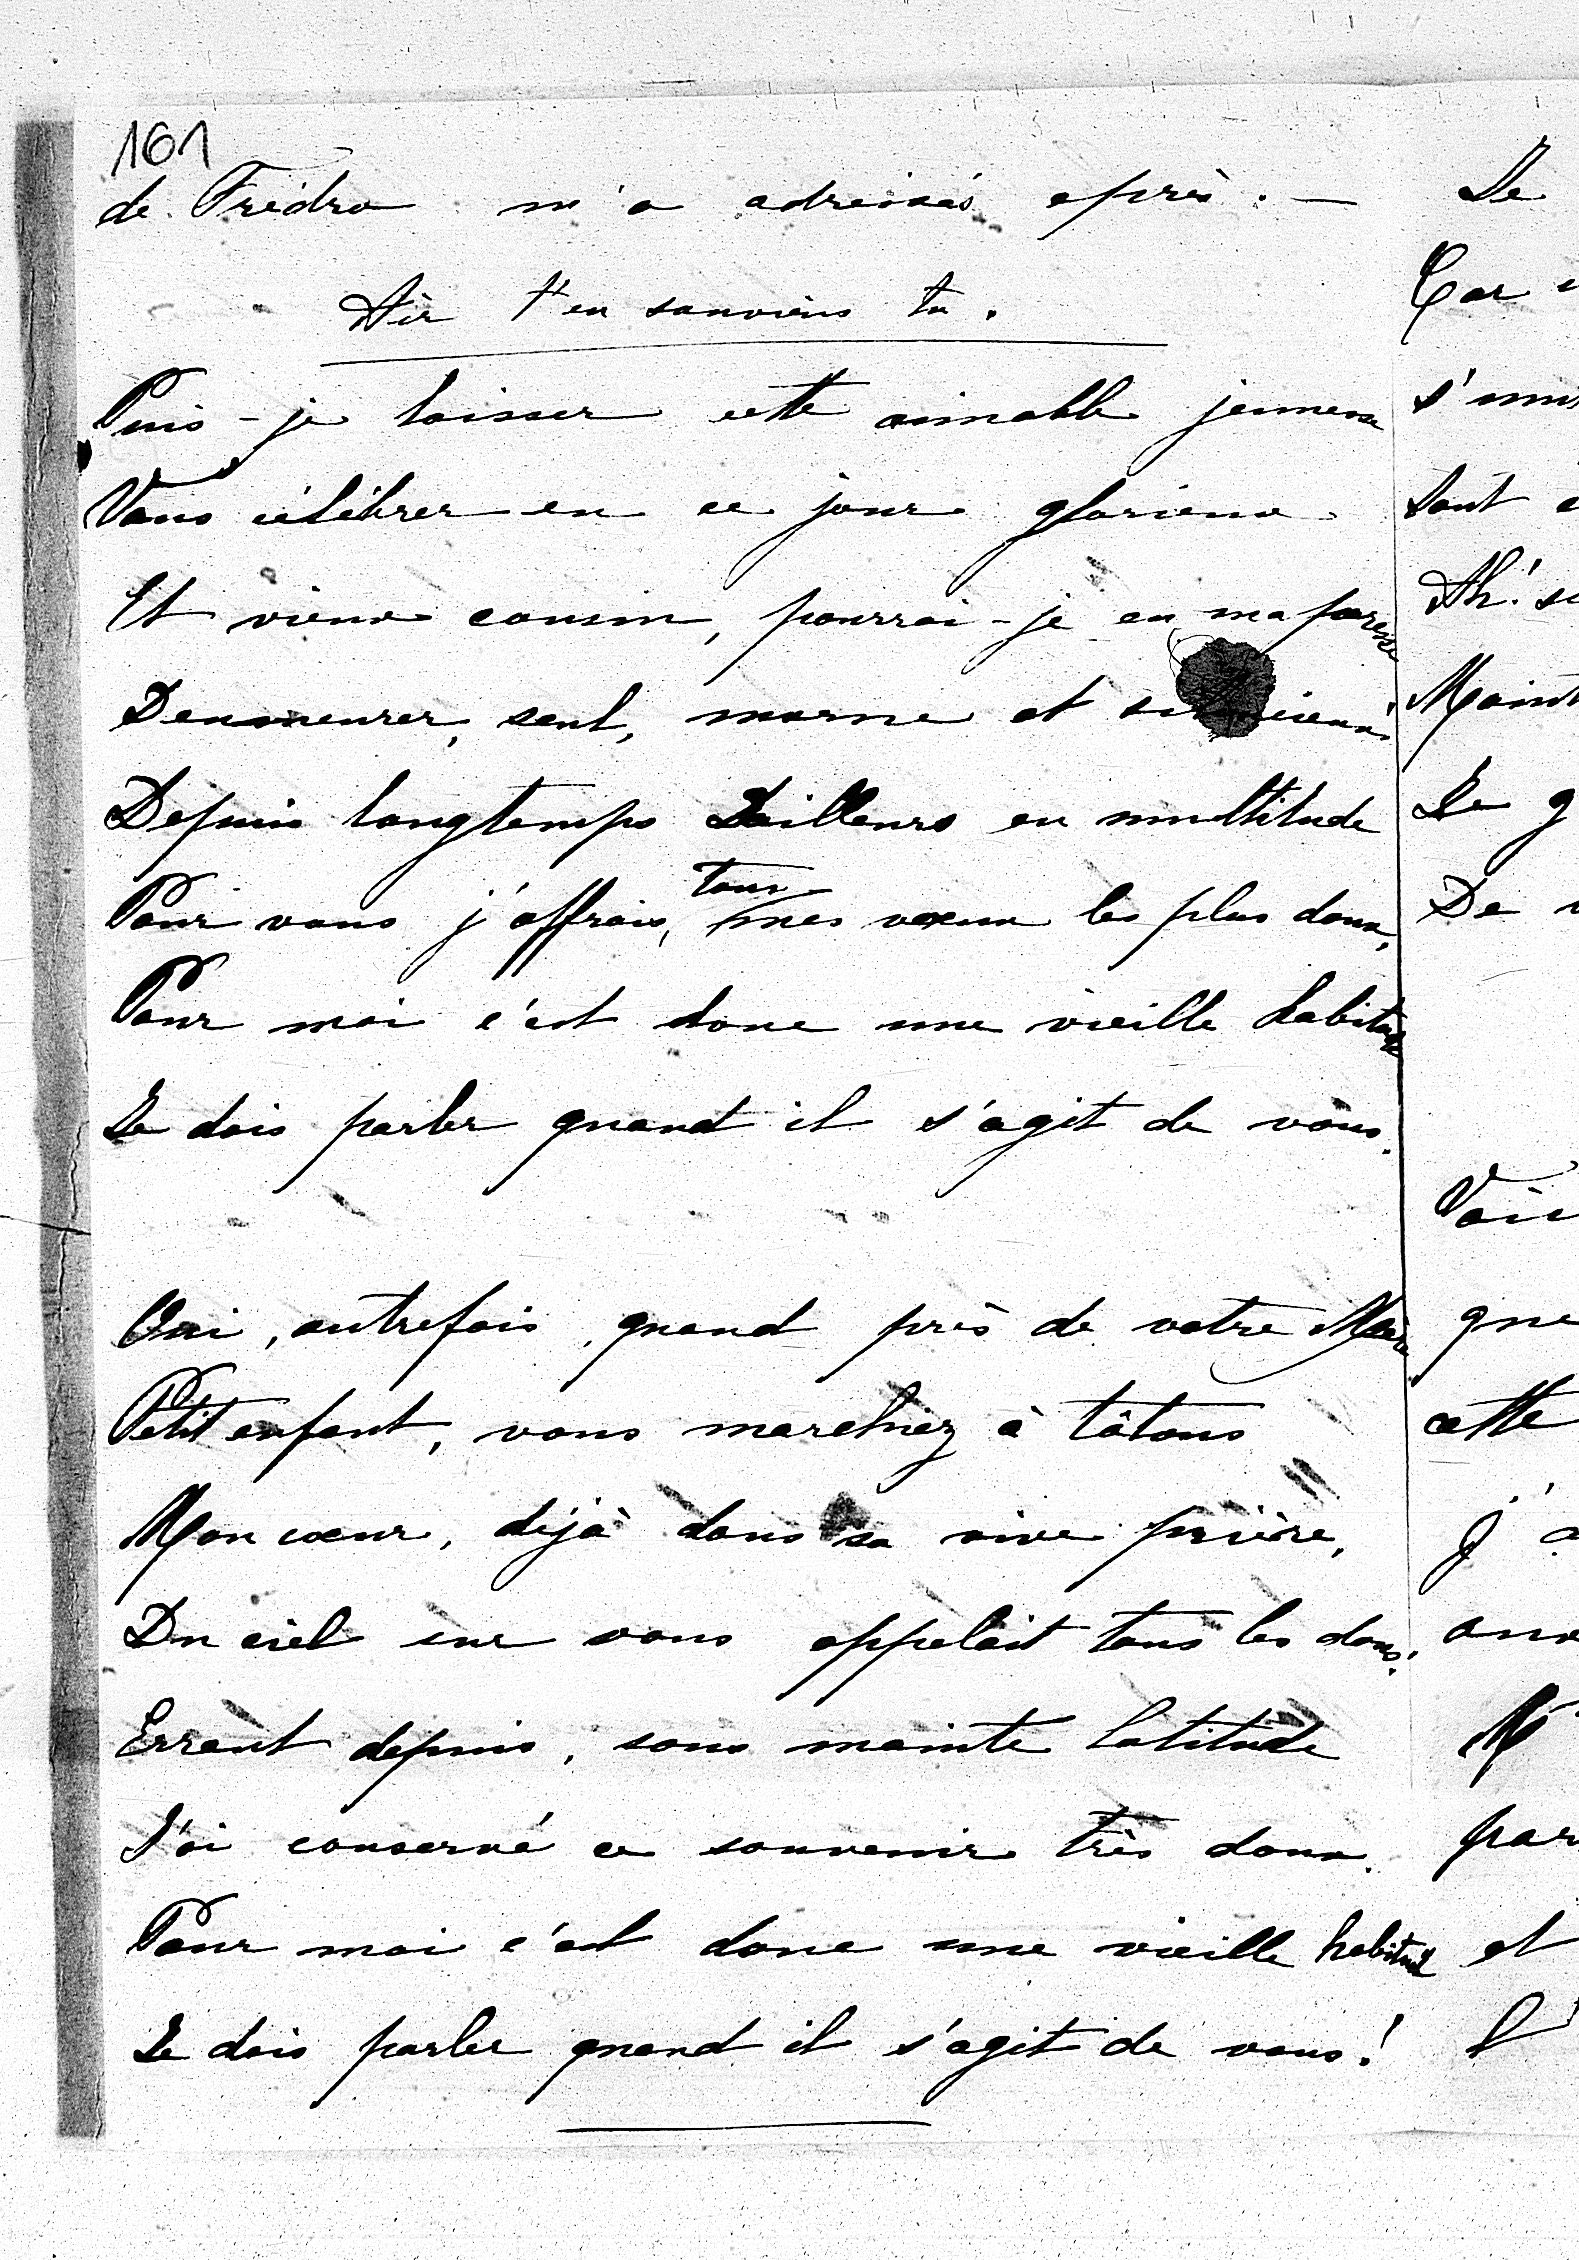 161
de Frédro m'a adressés après. —
Air t'en souviens tu.
Puis-je laisser cette aimable jeunesse
Vous célébrer en ce jour glorieux
Et vieux cousin, pourrai-je en ma paresse
Demeurer, seul, morne et
Depuis longtemps Dailleurs en multitude
Pour vous j'offrais, tous mes vœux les plus doux,
Pour moi c'est donc une vieille habitude
Je dois parler quand il s'agit de vous.
Oui, autrefois, quand près de votre Mère
Petit enfant, vous marchiez à tâtons
Mon cœur, déjà dans sa vive prière,
Du ciel sur vous appelait tous les dons.
Errant depuis, sous mainte latitude
J'ai conservé ce souvenir très doux.
Pour moi c'est donc une vieille habitude
Je dois parler quand il s'agit de vous!
Je
Car
sont
Ah! si
Je g
De
que
cette
j'a
M
par
et
l'